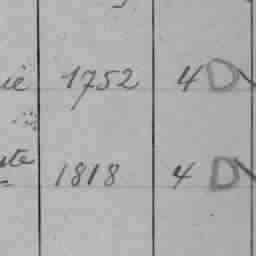 ie 1752 4 D
te 1818 4 D